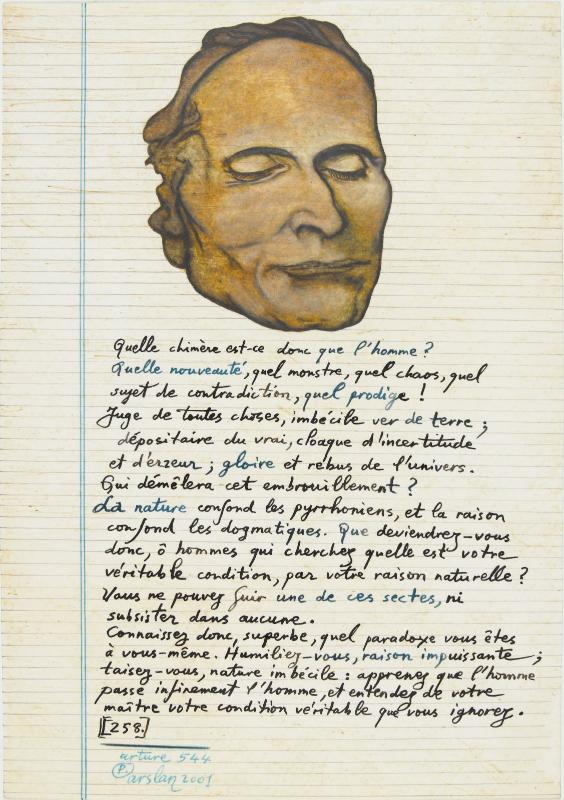 Quelle chimère est-ce donc que l'homme ?
Quelle nouveauté, quel monstre, quel chaos, quel
sujet de contradiction, quel prodige !
Juge de toutes choses, imbécile ver de terre ;
dépositaire du vrai, cloaque d'incertitude
et d'erreur ; gloire et rebus de l'univers.
Qui démêlera cet embrouillement ?
La nature confond les pyrrhoniens, et la raison
confond les dogmatiques. Que deviendrez-vous
donc, ô hommes qui cherchez quelle est votre
véritable condition, par votre raison naturelle ?
Vous ne pouvez fuir une de ces sectes, ni
subsister dans aucune.
Connaissez donc, superbe, quel paradoxe vous êtes
à vous-même. Humiliez-vous, raison impuissante ;
taisez-vous, nature imbécile : apprenez que l'homme
passe infiniment l'homme, et entendez de votre
maître votre condition véritable que vous ignorez.
[258.]
arture 544
P. arslan 2001